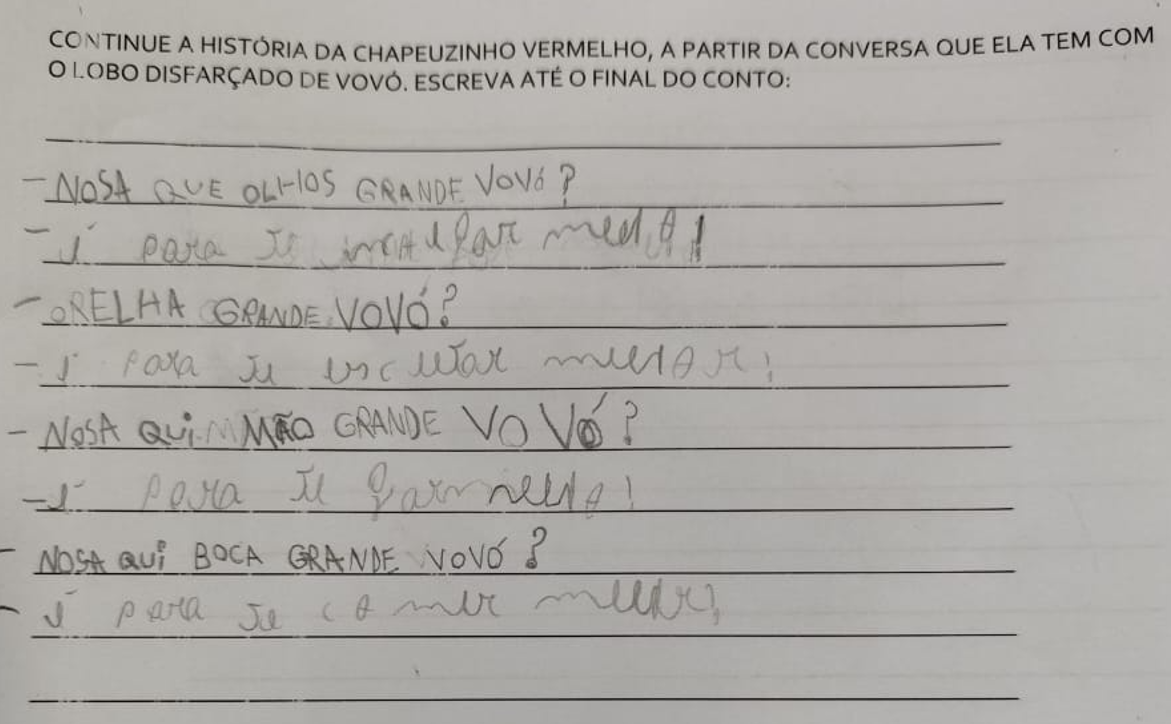 CONTINUE A HISTÓRIA DA CHAPEUZINHO VERMELHO, A PARTIR DA CONVERSA QUE ELA TEM COM
O LOBO DISFARÇADO DE VOVÓ. ESCREVA ATÉ O FINAL DO CONTO:
- NOSA QUE OLHOS GRANDE VOVÓ?
- É para te
- ORELHA GRANDE VOVÓ?
- É para te escutar
- NOSA QUI MÃO GRANDE VOVÓ?
- É para te
- NOSA QUI BOCA GRANDE VOVÓ?
- É para te comer